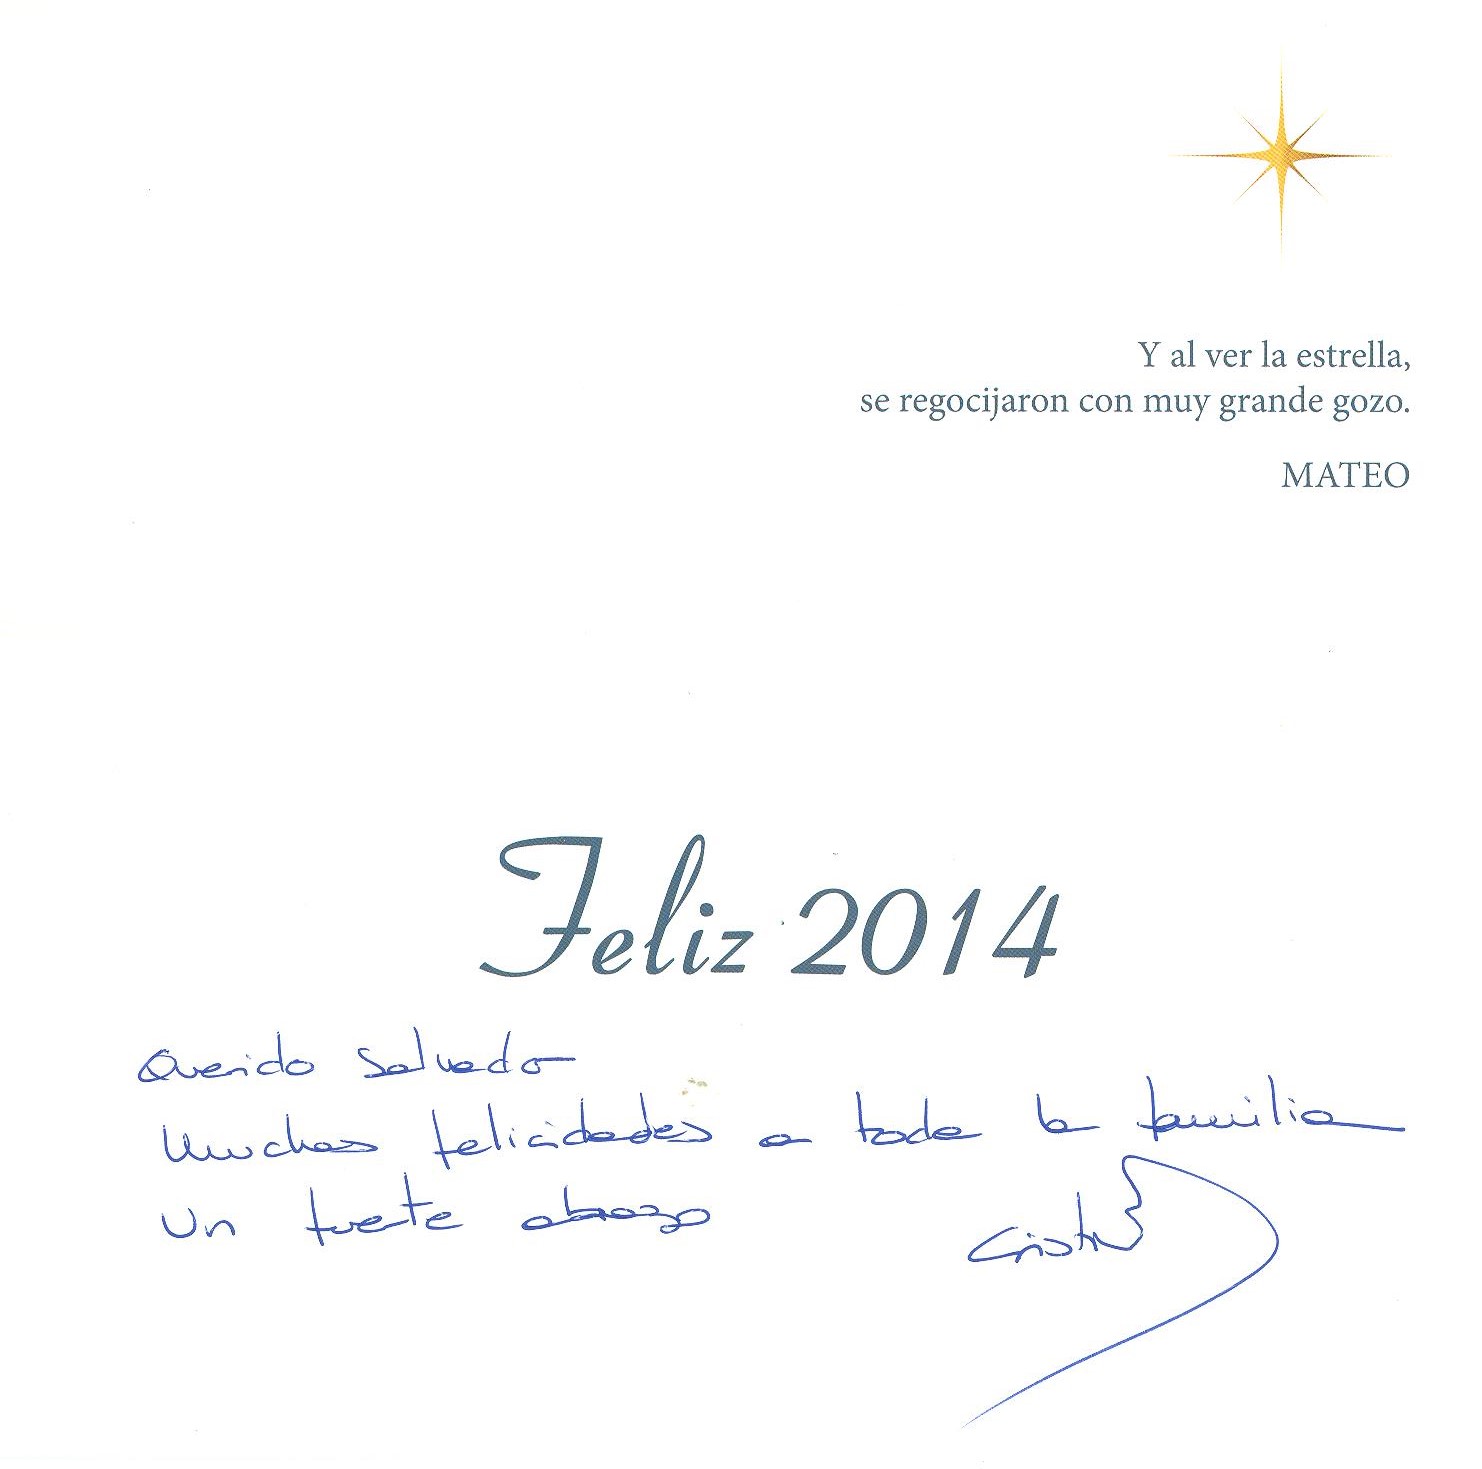 Y al ver la estrella,
se regocijaron con muy grande gozo.
MATEO
Feliz 2014
Querido Salvador
Muchas felicidades a toda la familia
Un fuerte abrazo